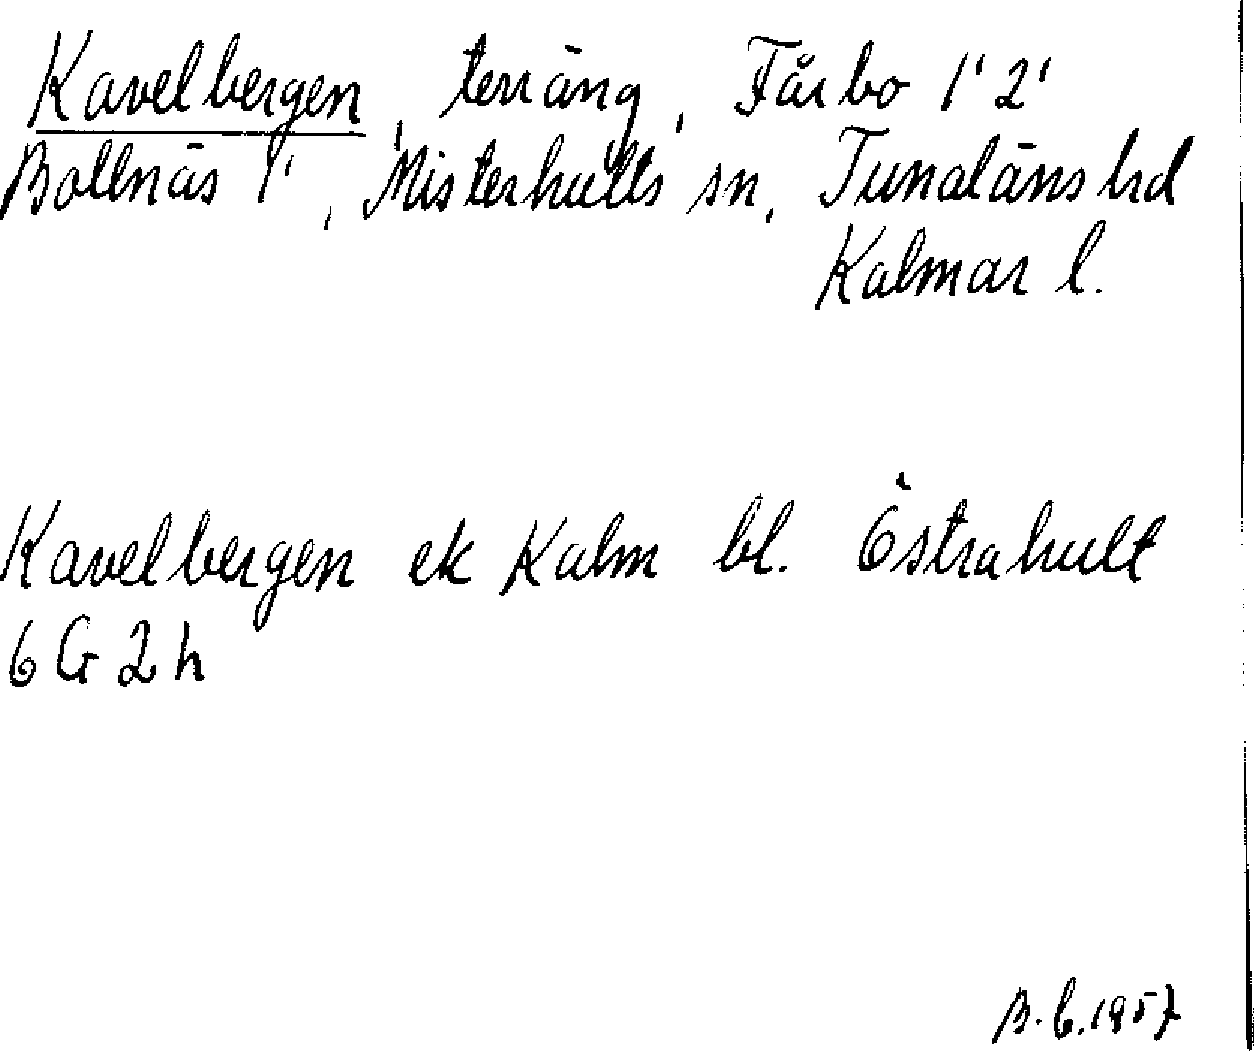 Kavelbergen, terräng, Fårbo 1' 2'
Bollnäs 1', Misterhults sn, Tunaläns hd
Kalmar l.
Kavelbergen ek Kalm bl. Östrahult
6 G 2 h
B. C. 1957